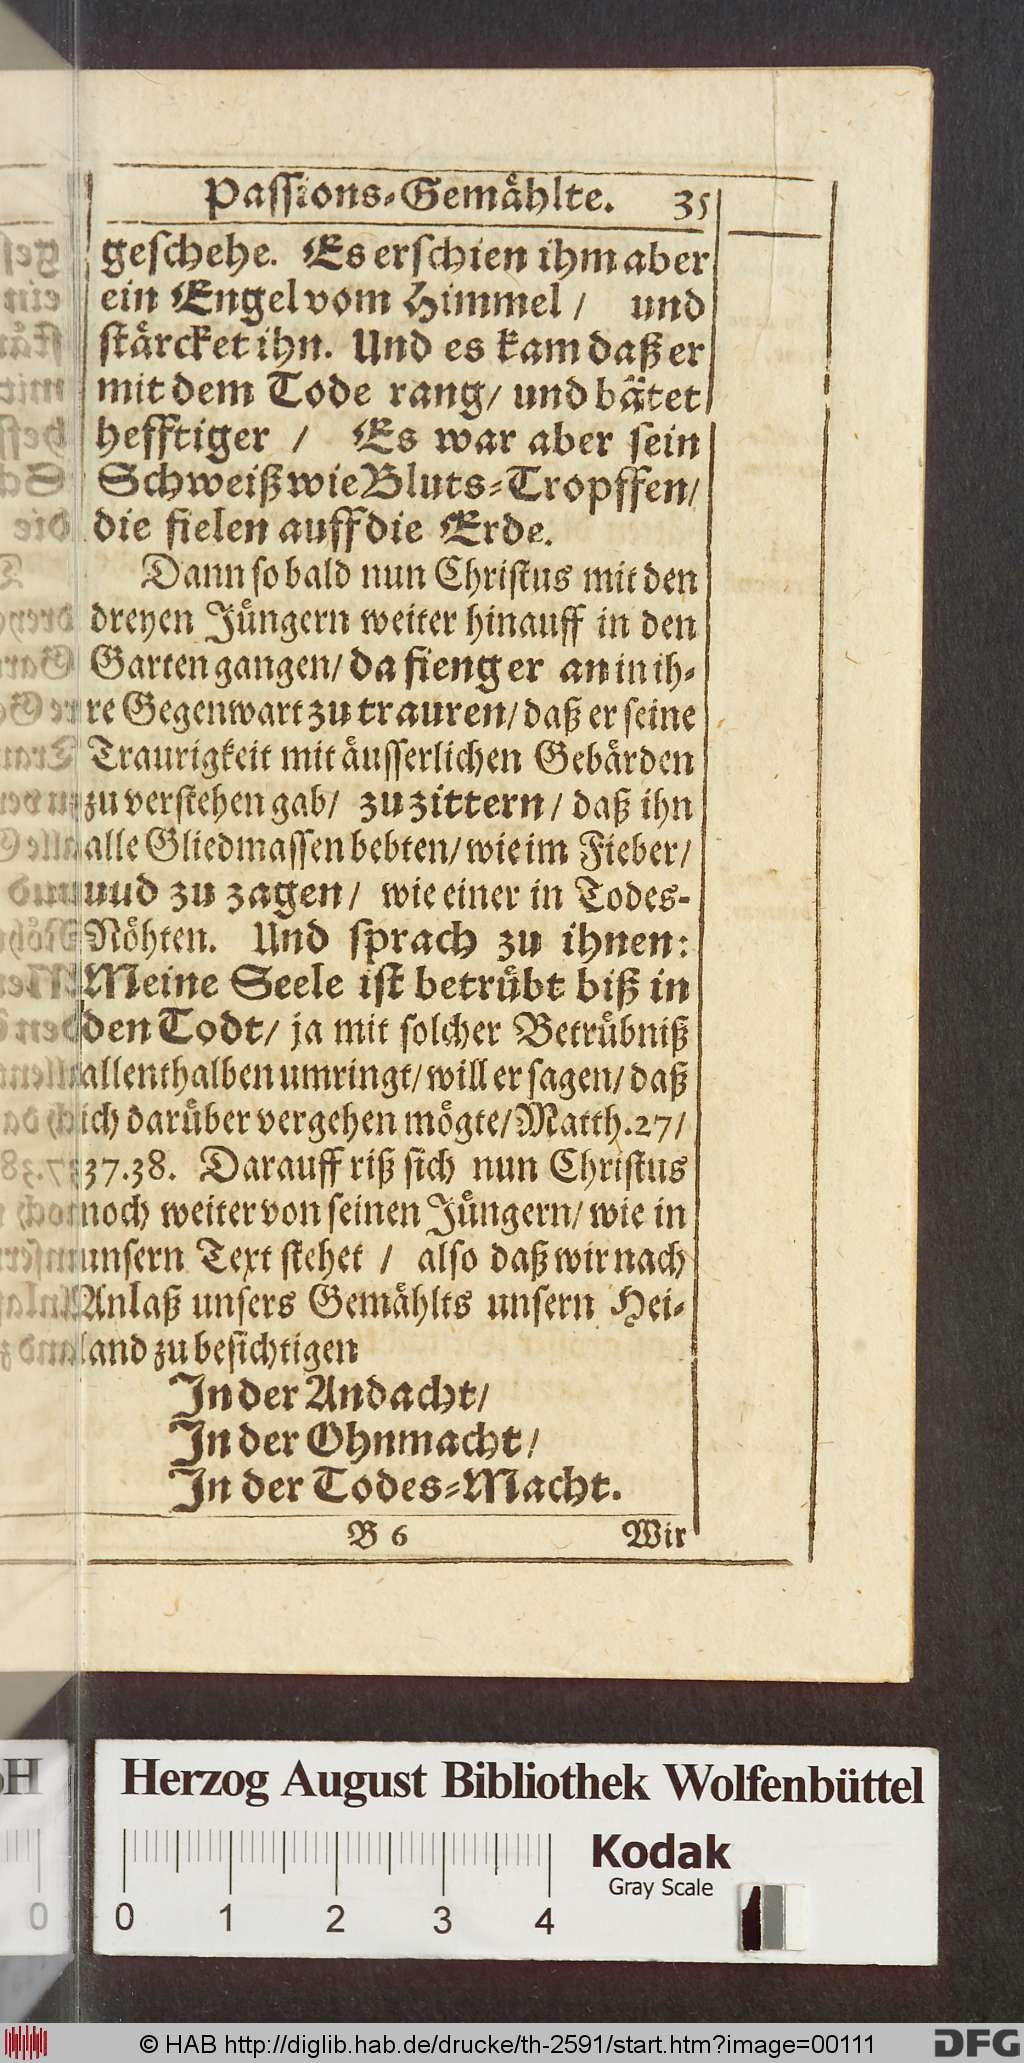 Passions-Gemåhlte. 35
geschehe. Es erschien ihm aber
ein Engel vom Himmel / und
stårcket ihn. Und es kam daß er
mit dem Tode rang/ und båtet
hefftiger / Es war aber sein
Schweiß wie Bluts-Tropffen/
die fielen auff die Erde.
Dann so bald nun Christus mit den
dreyen Jůngern weiter hinauff in den
Garten gangen/ da fieng er an in ih-
re Gegenwart zu trauren/ daß er seine
Traurigkeit mit åusserlichen Gebården
zu verstehen gab/ zu zittern/ daß ihn
alle Gliedmassen bebten/ wie im Fieber/
uud zu zagen/ wie einer in Todes-
Nöhten. Und sprach zu ihnen:
Meine Seele ist betrůbt biß in
den Todt/ ja mit solcher Betrůbniß
allenthalben umringt/ will er sagen/ daß
ich darůber vergehen mögte/ Matth. 27/
37.38. Darauff riß sich nun Christus
noch weiter von seinen Jůngern/ wie in
unsern Text stehet / also daß wir nach
Anlaß unsers Gemåhlts unsern Hei-
land zu besichtigen
In der Andacht/
In der Ohnmacht/
In der Todes-Macht.
B 6 Wir
Herzog August Bibliothek Wolfenbüttel
Kodak
Gray Scale
0 1 2 3 4
© HAB http://diglib.hab.de/drucke/th-2591/start.htm?image=00111
DFG